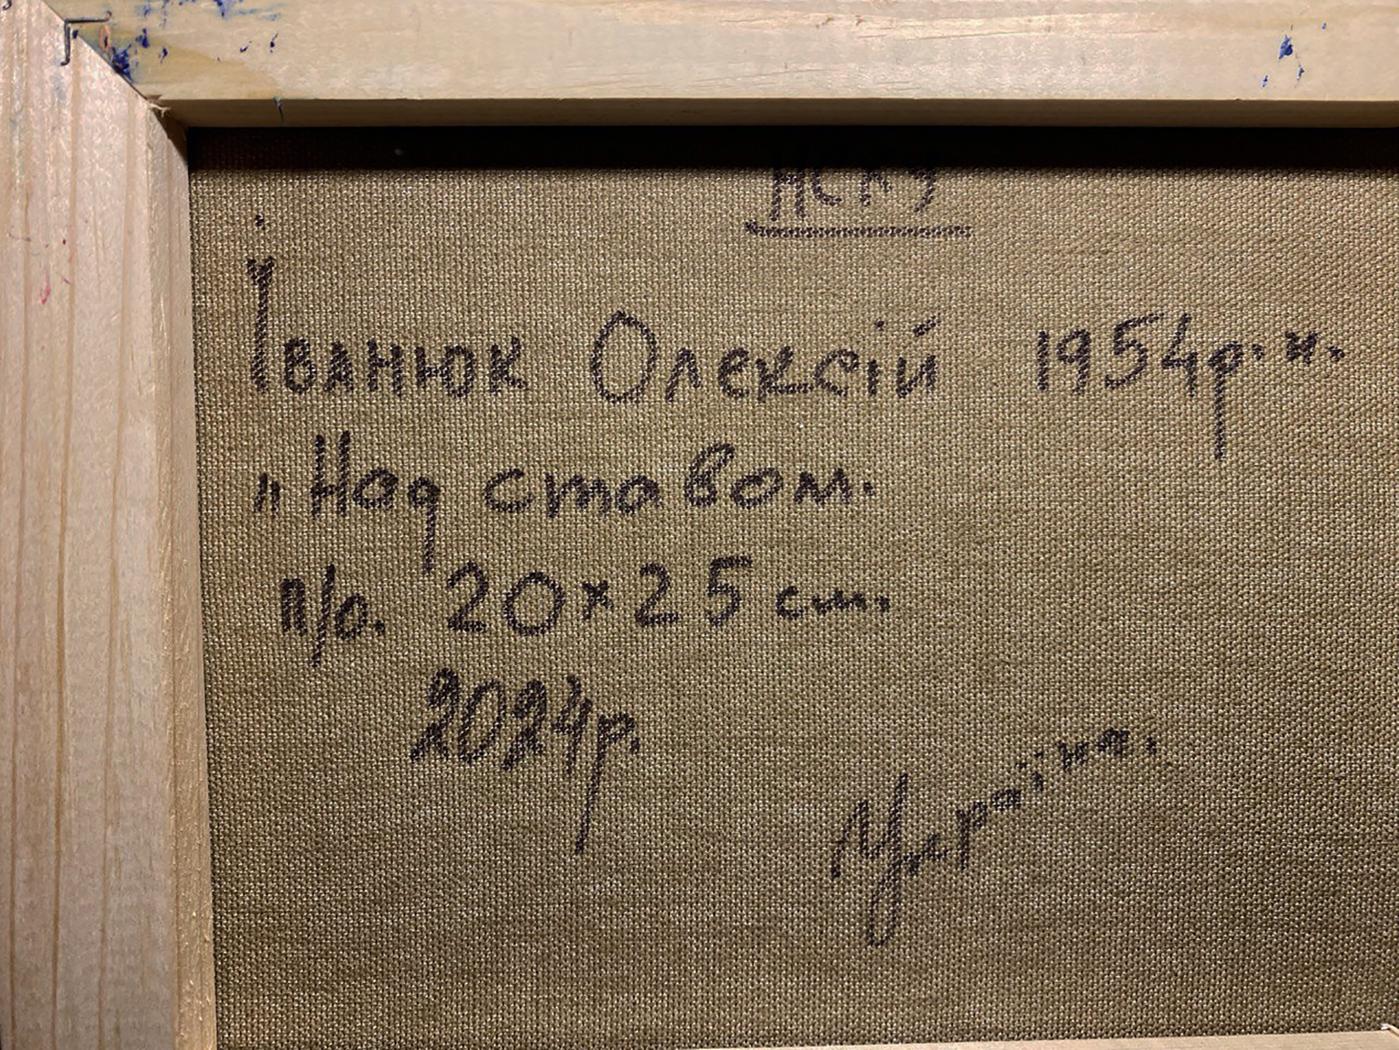 НСХУ
Іванюк Олексій 1954р.н.
"Над ставом.
п/о. 20×25 см.
2024р.
Україна.